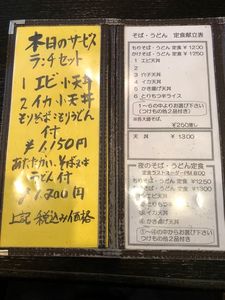 本日のサービス
ランチセット
1 エビ小天丼
2 イカ小天丼
付
¥1,150円
あたたかい
上記税込み価格
そば・うどん 定食献立表
もりそば・うどん 定食 ¥1200
かけそば・うどん 定食 ¥1250
1 エビ天丼
2
3 穴子天丼
4 イカ天丼
5 かき揚げ天丼
6 とりもつキライス
①〜⑥の中よりお選び下さい
(つけもの他2品付き)
天丼 ¥1300
夜のそば・うどん定食
定食ラストオーダーPM 8:00
もりそば・うどん 定食 ¥1250
かけそば・うどん 定食 ¥1300
イカ天丼
かき揚げ天丼
①〜④の中からお選び下さい
(つけもの他2品付き)